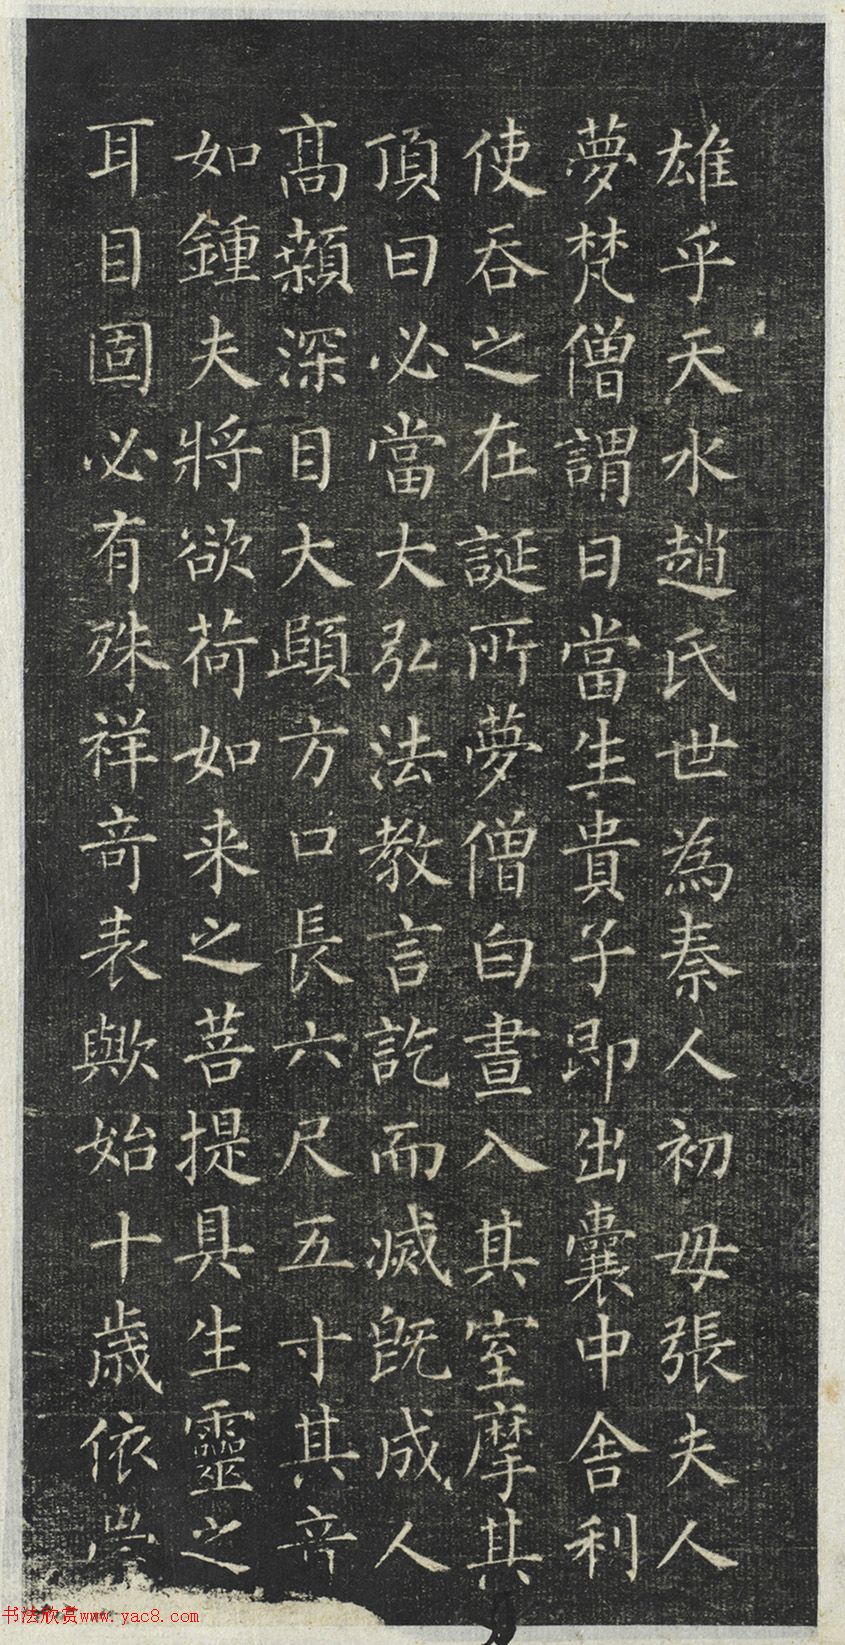 雄乎天水趙氏世為秦人初母張夫人
夢梵僧謂曰當生貴子即出囊中舍利
使吞之在誕所夢僧白晝入其室摩其
頂曰必當大弘法教言訖而滅既成人
高顙深目大頤方口長六尺五寸其音
如鍾夫將欲荷如来之菩提具生靈之
耳目固必有殊祥奇表歟始十歲依
书法欣赏www.yac8.com